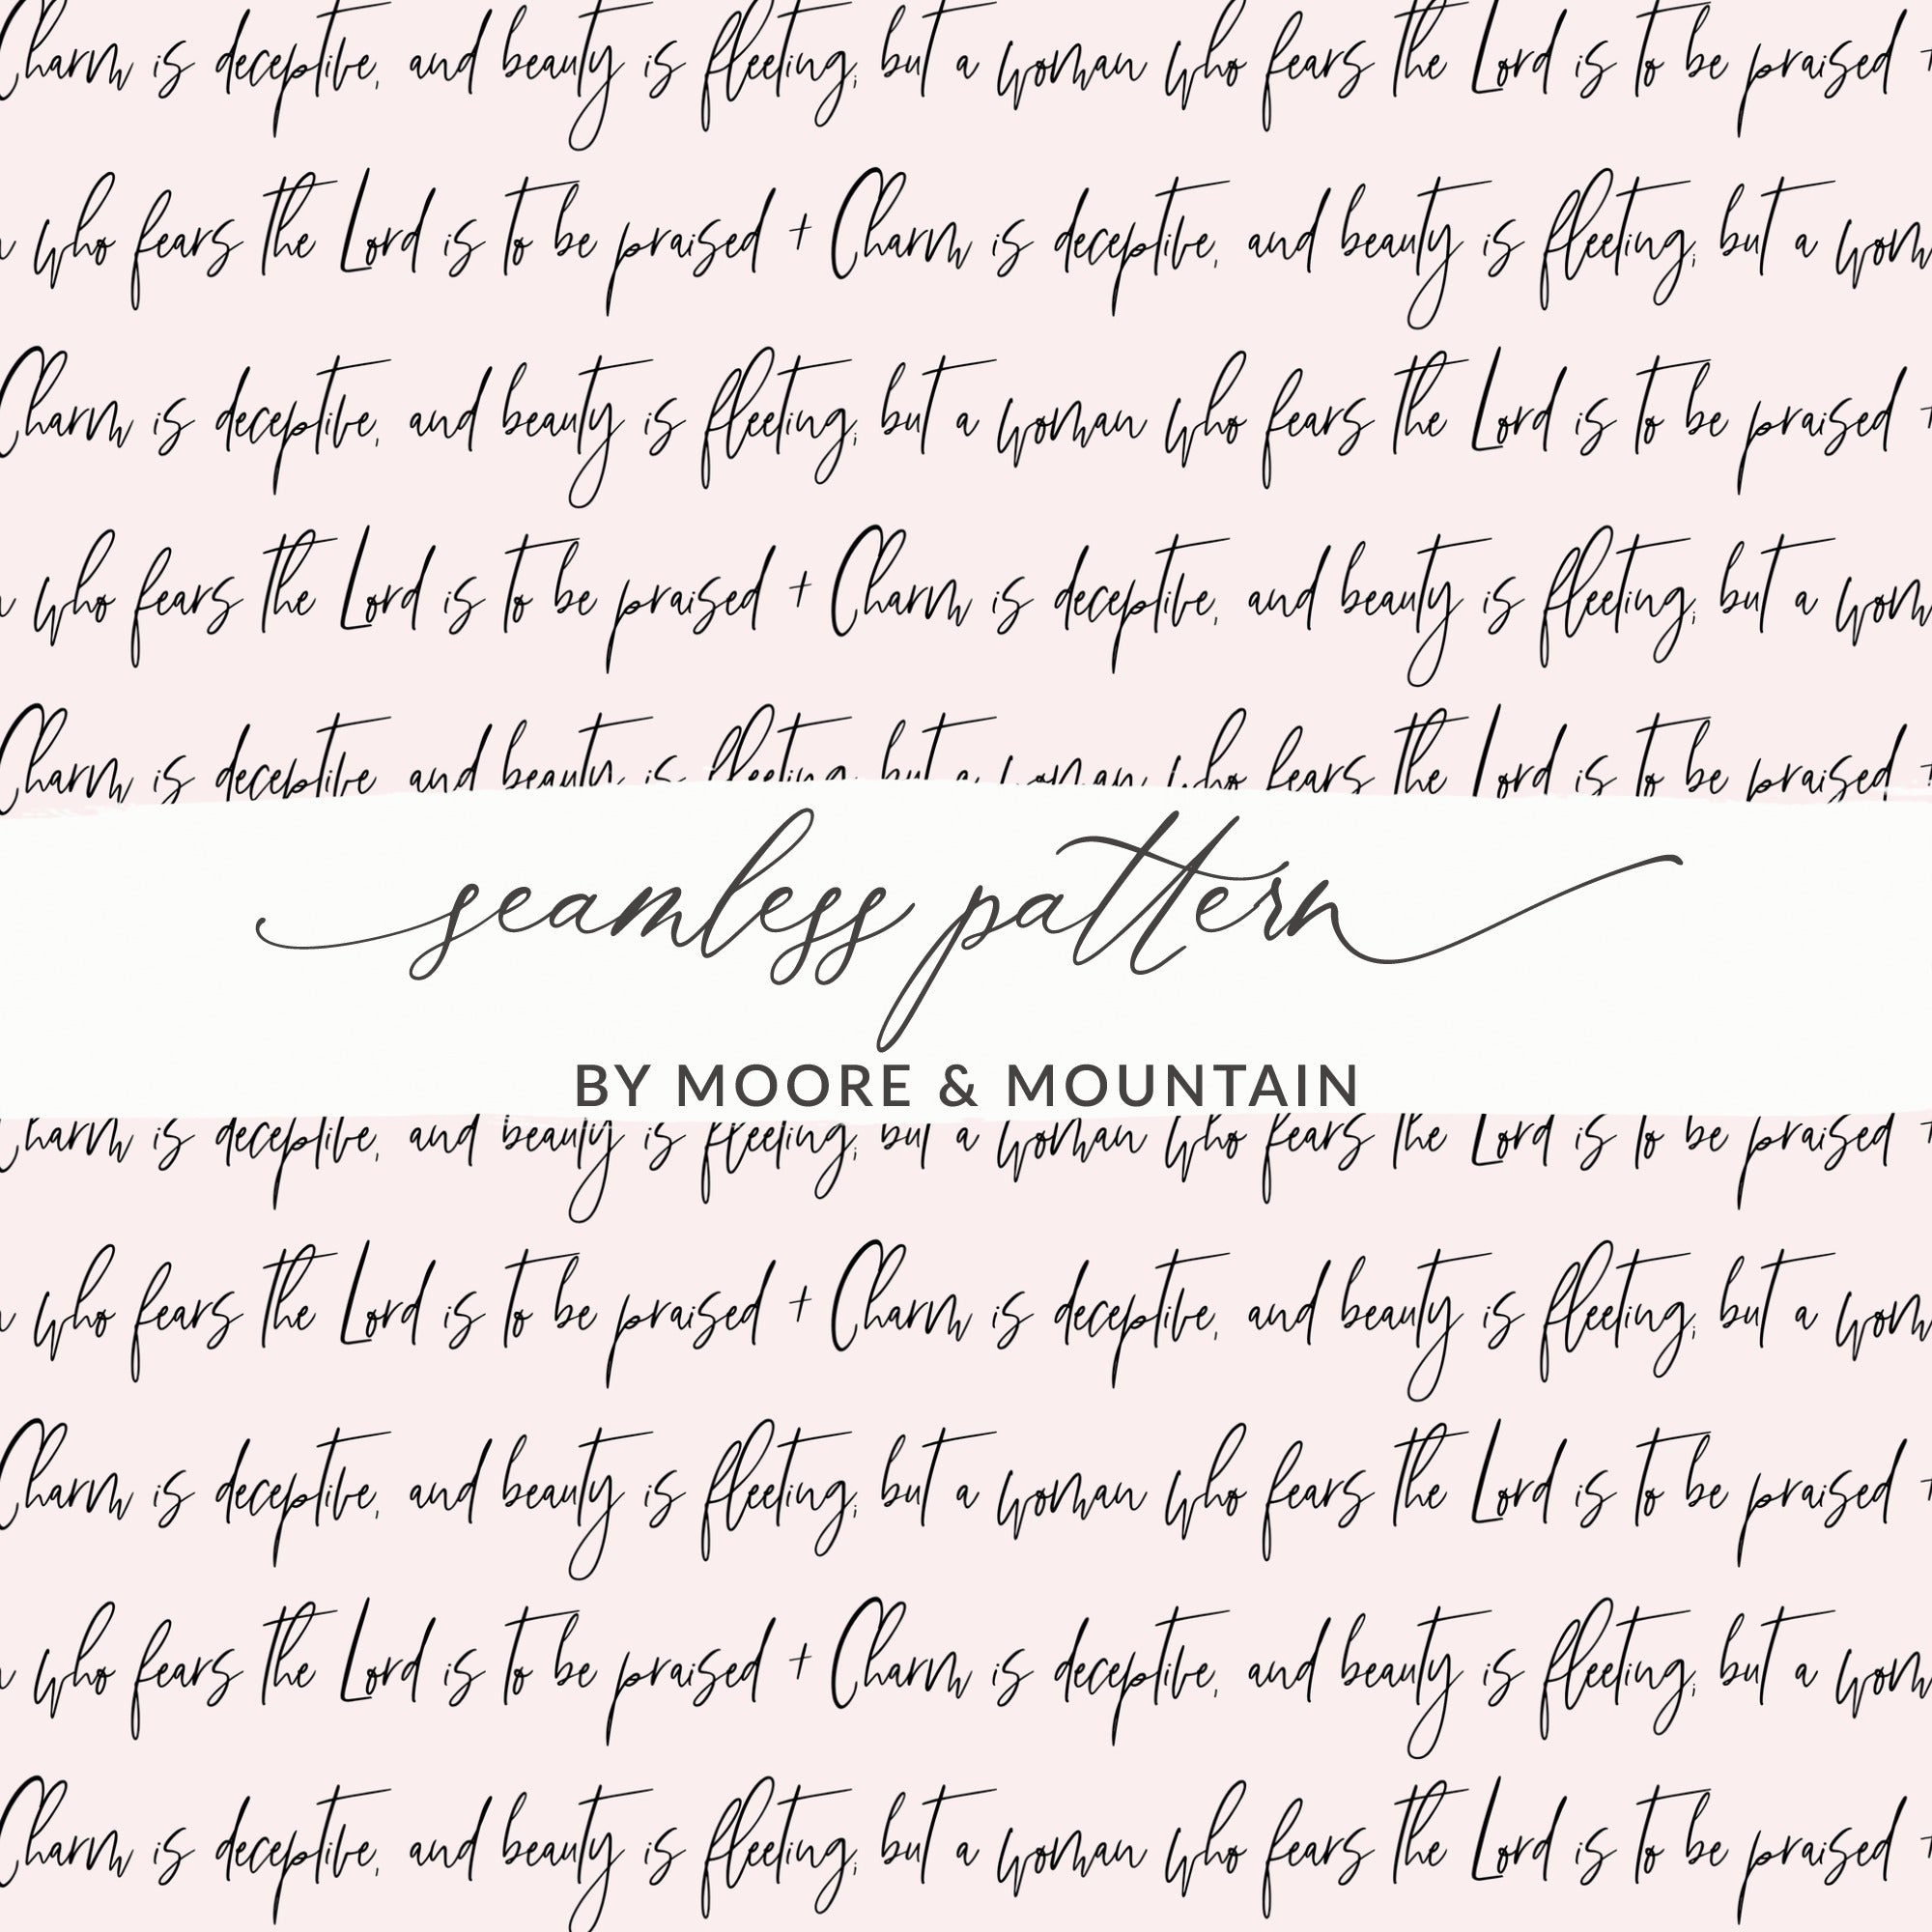 Charm is deceptive, and beauty is fleeting; but a woman who fears the Lord is to be praised +
who fears the Lord is to be praised + Charm is deceptive, and beauty is fleeting; but a wom
Charm is deceptive, and beauty is fleeting; but a woman who fears the Lord is to be praised +
who fears the Lord is to be praised + Charm is deceptive, and beauty is fleeting; but a wom
Charm is deceptive and beauty is fleeting but a woman who fears the Lord is to be praised +
seamless pattern
BY MOORE & MOUNTAIN
Charm is deceptive, and beauty is fleeting; but a woman who fears the Lord is to be praised +
who fears the Lord is to be praised + Charm is deceptive, and beauty is fleeting; but a wom
Charm is deceptive, and beauty is fleeting; but a woman who fears the Lord is to be praised +
who fears the Lord is to be praised + Charm is deceptive, and beauty is fleeting; but a wom
Charm is deceptive, and beauty is fleeting; but a woman who fears the Lord is to be praised +